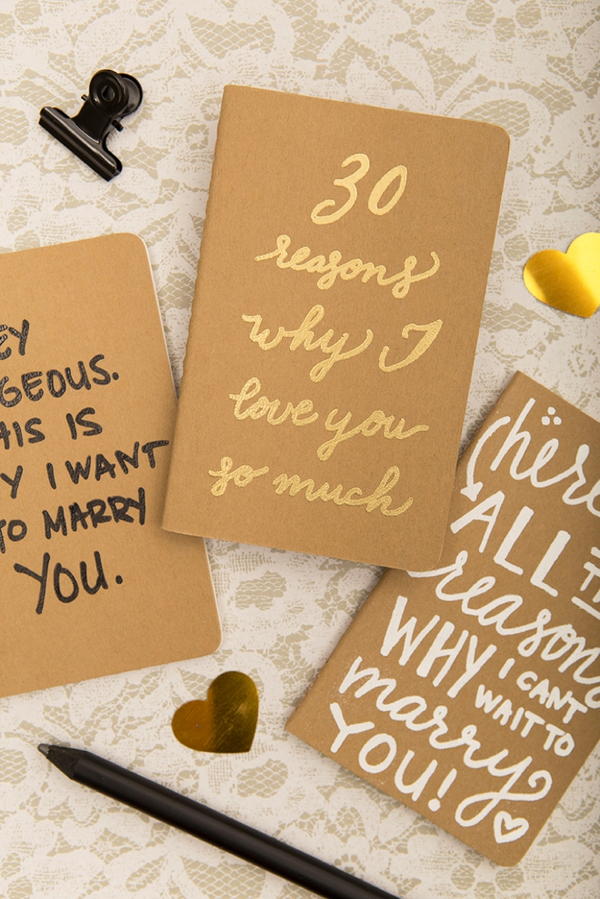 EY
GEOUS.
HIS IS
Y I WANT
TO MARRY
YOU.
30
reasons
why I
love you
so much
here
ALL
reasons
WHY I CANT
WAIT TO
marry
YOU!